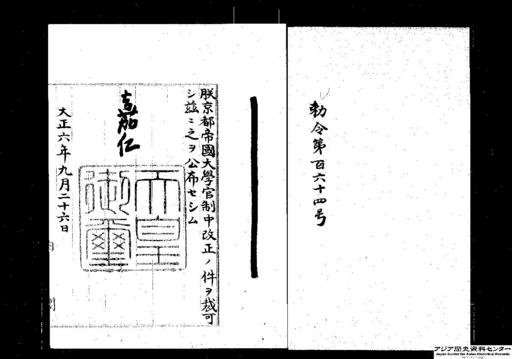 勅令第百六十四号
朕京都帝國大學官制中改正ノ件ヲ裁可
シ茲ニ之ヲ公布セシム
嘉仁
天皇御璽
大正六年九月二十六日
アジア歴史資料センター
Japan Center for Asian Historical Records